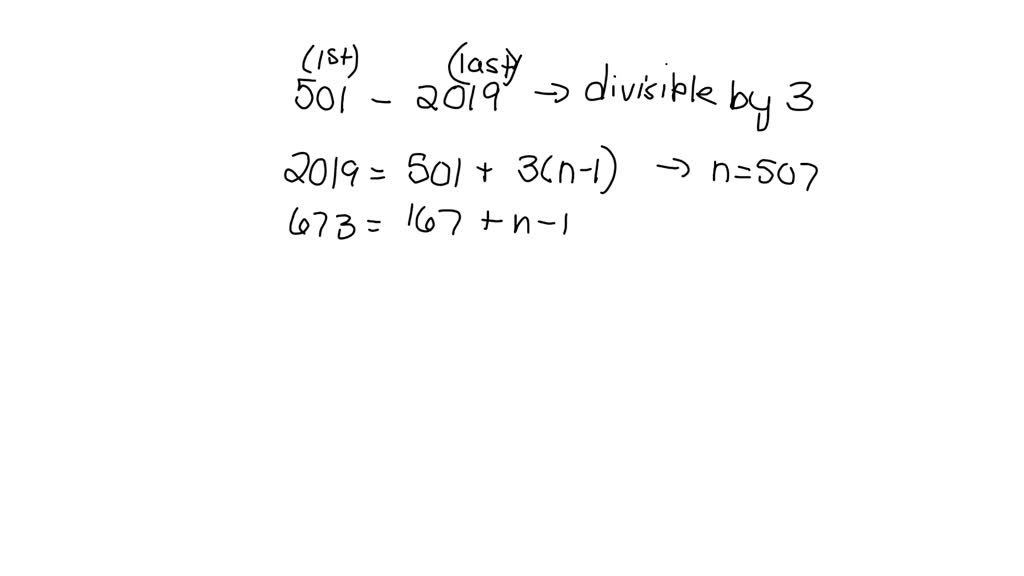 (1st) (last)
501 - 2019 → divisible by 3
2019 = 501 + 3(n-1) → n=507
673 = 167 + n-1